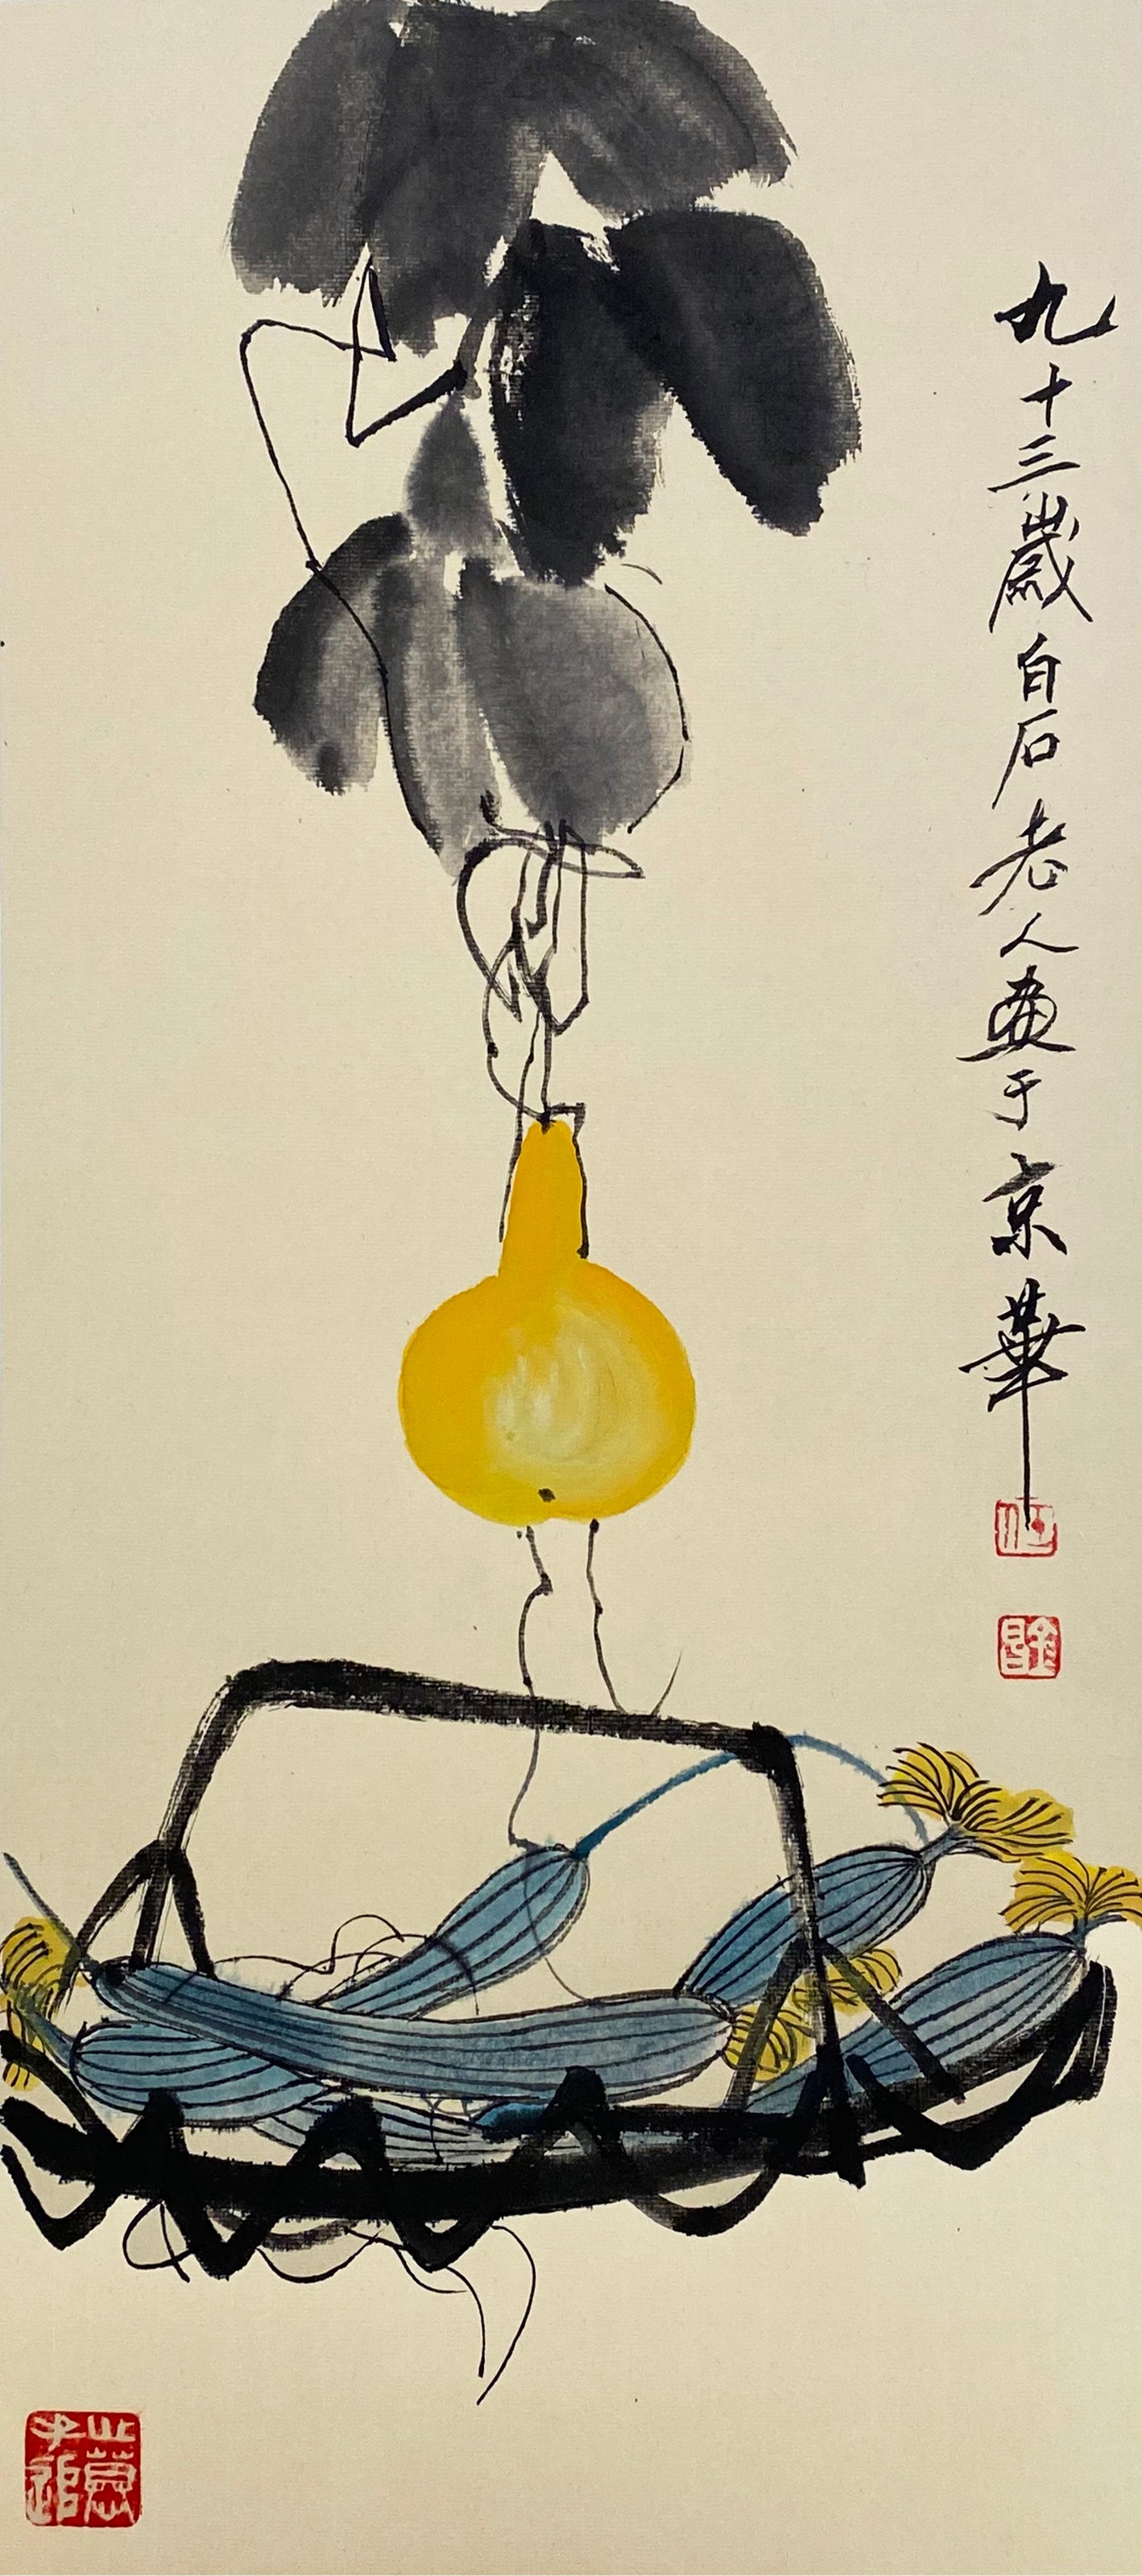 九十三歲白石老人畫于京華